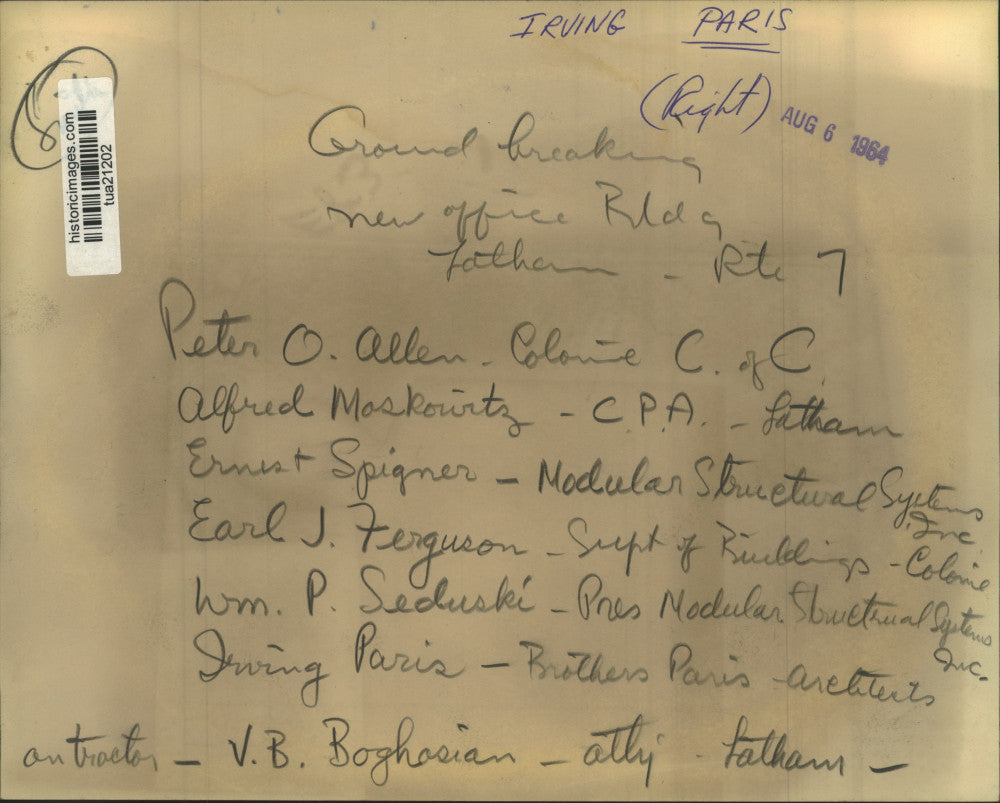 IRVING PARIS
(Right)
AUG 6 1964
historicimages.com
tua21202
Ground breaking
new office Bldg
Latham - Rte 7
Peter O. Allen - Colonie C. of C.
Alfred Moskowitz - C.P.A. - Latham
Ernest Spigner - Modular Structural Systems
Inc.
Earl J. Ferguson - Supt of Buildings - Colonie
Wm. P. Seduski - Pres Modular Structrual Systems
Inc.
Irving Paris - Brothers Paris Architects
ontractor - V.B. Boghosian - atty - Latham -